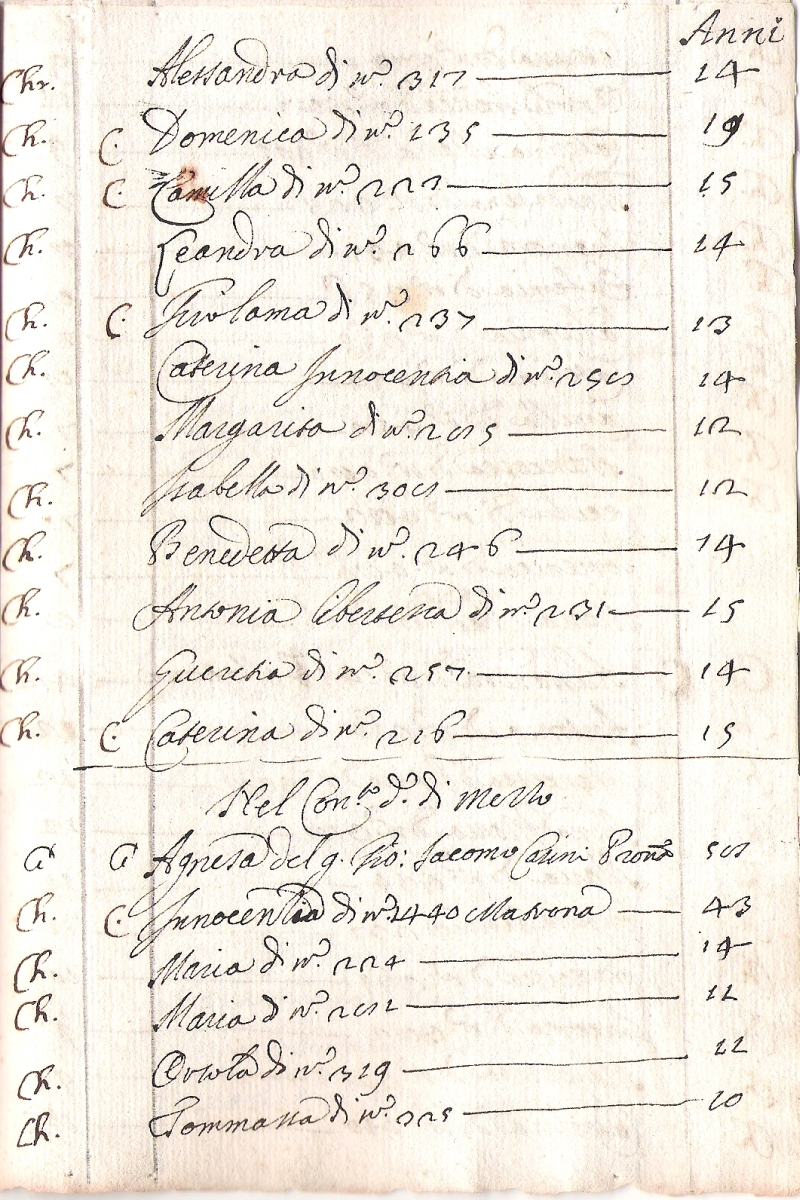 Anni
Chr. Alessandra di N.º 317 14
Ch. C. Domenica di N.º 135 19
Ch. C. Camilla di N.º 222 15
Ch. Leandra di N.º 266 14
Ch. C. Girolama di N.º 237 13
Ch. Caterina Innocentia di N.º 14
Ch. Margarita di N.º 12
Ch. Isabella di N.º 12
Ch. Benedetta di N.º 246 14
Ch. Antonia di N.º 231 15
Ch. Lucretia di N.º 257 14
Ch. C. Caterina di N.º 216 15
Nel d.º di mezzo
Agnesa del q. Gio: Iacomo
Ch. C. Innocentia di N.º 1440 Matrona 43
Ch. Maria di N.º 224 14
Ch. Maria di N.º
Ch. Orsola di N.º 319
Ch. Tommasa di N.º 225 10